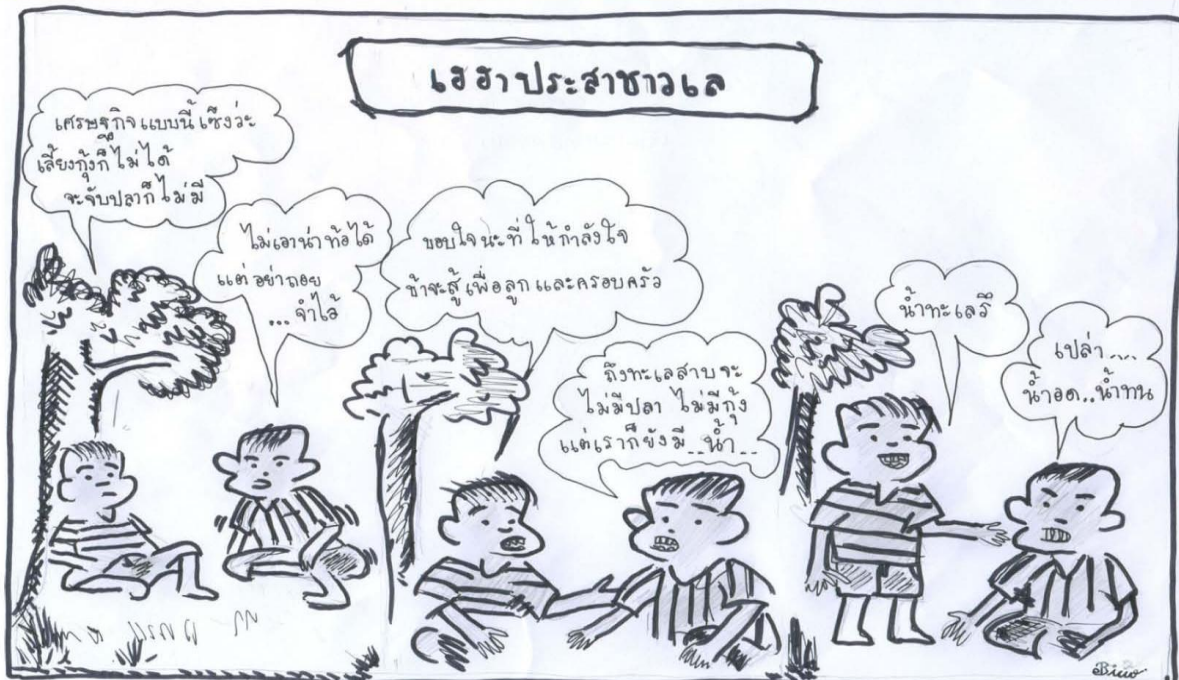 เฮฮาประสาชาวเล
เศรษฐกิจแบบนี้เซ็งว่ะ
เลี้ยงกุ้งก็ไม่ได้
จะจับปลาก็ไม่มี
ไม่เอาน่าท้อได้
แต่อย่าถอย
...จำไว้
ขอบใจนะที่ให้กำลังใจ
ข้าจะสู้เพื่อลูกและครอบครัว
ถึงทะเลสาบจะ
ไม่มีปลา ไม่มีกุ้ง
แต่เราก็ยังมี..น้ำ..
น้ำทะเลรึ
เปล่า....
น้ำอด..น้ำทน